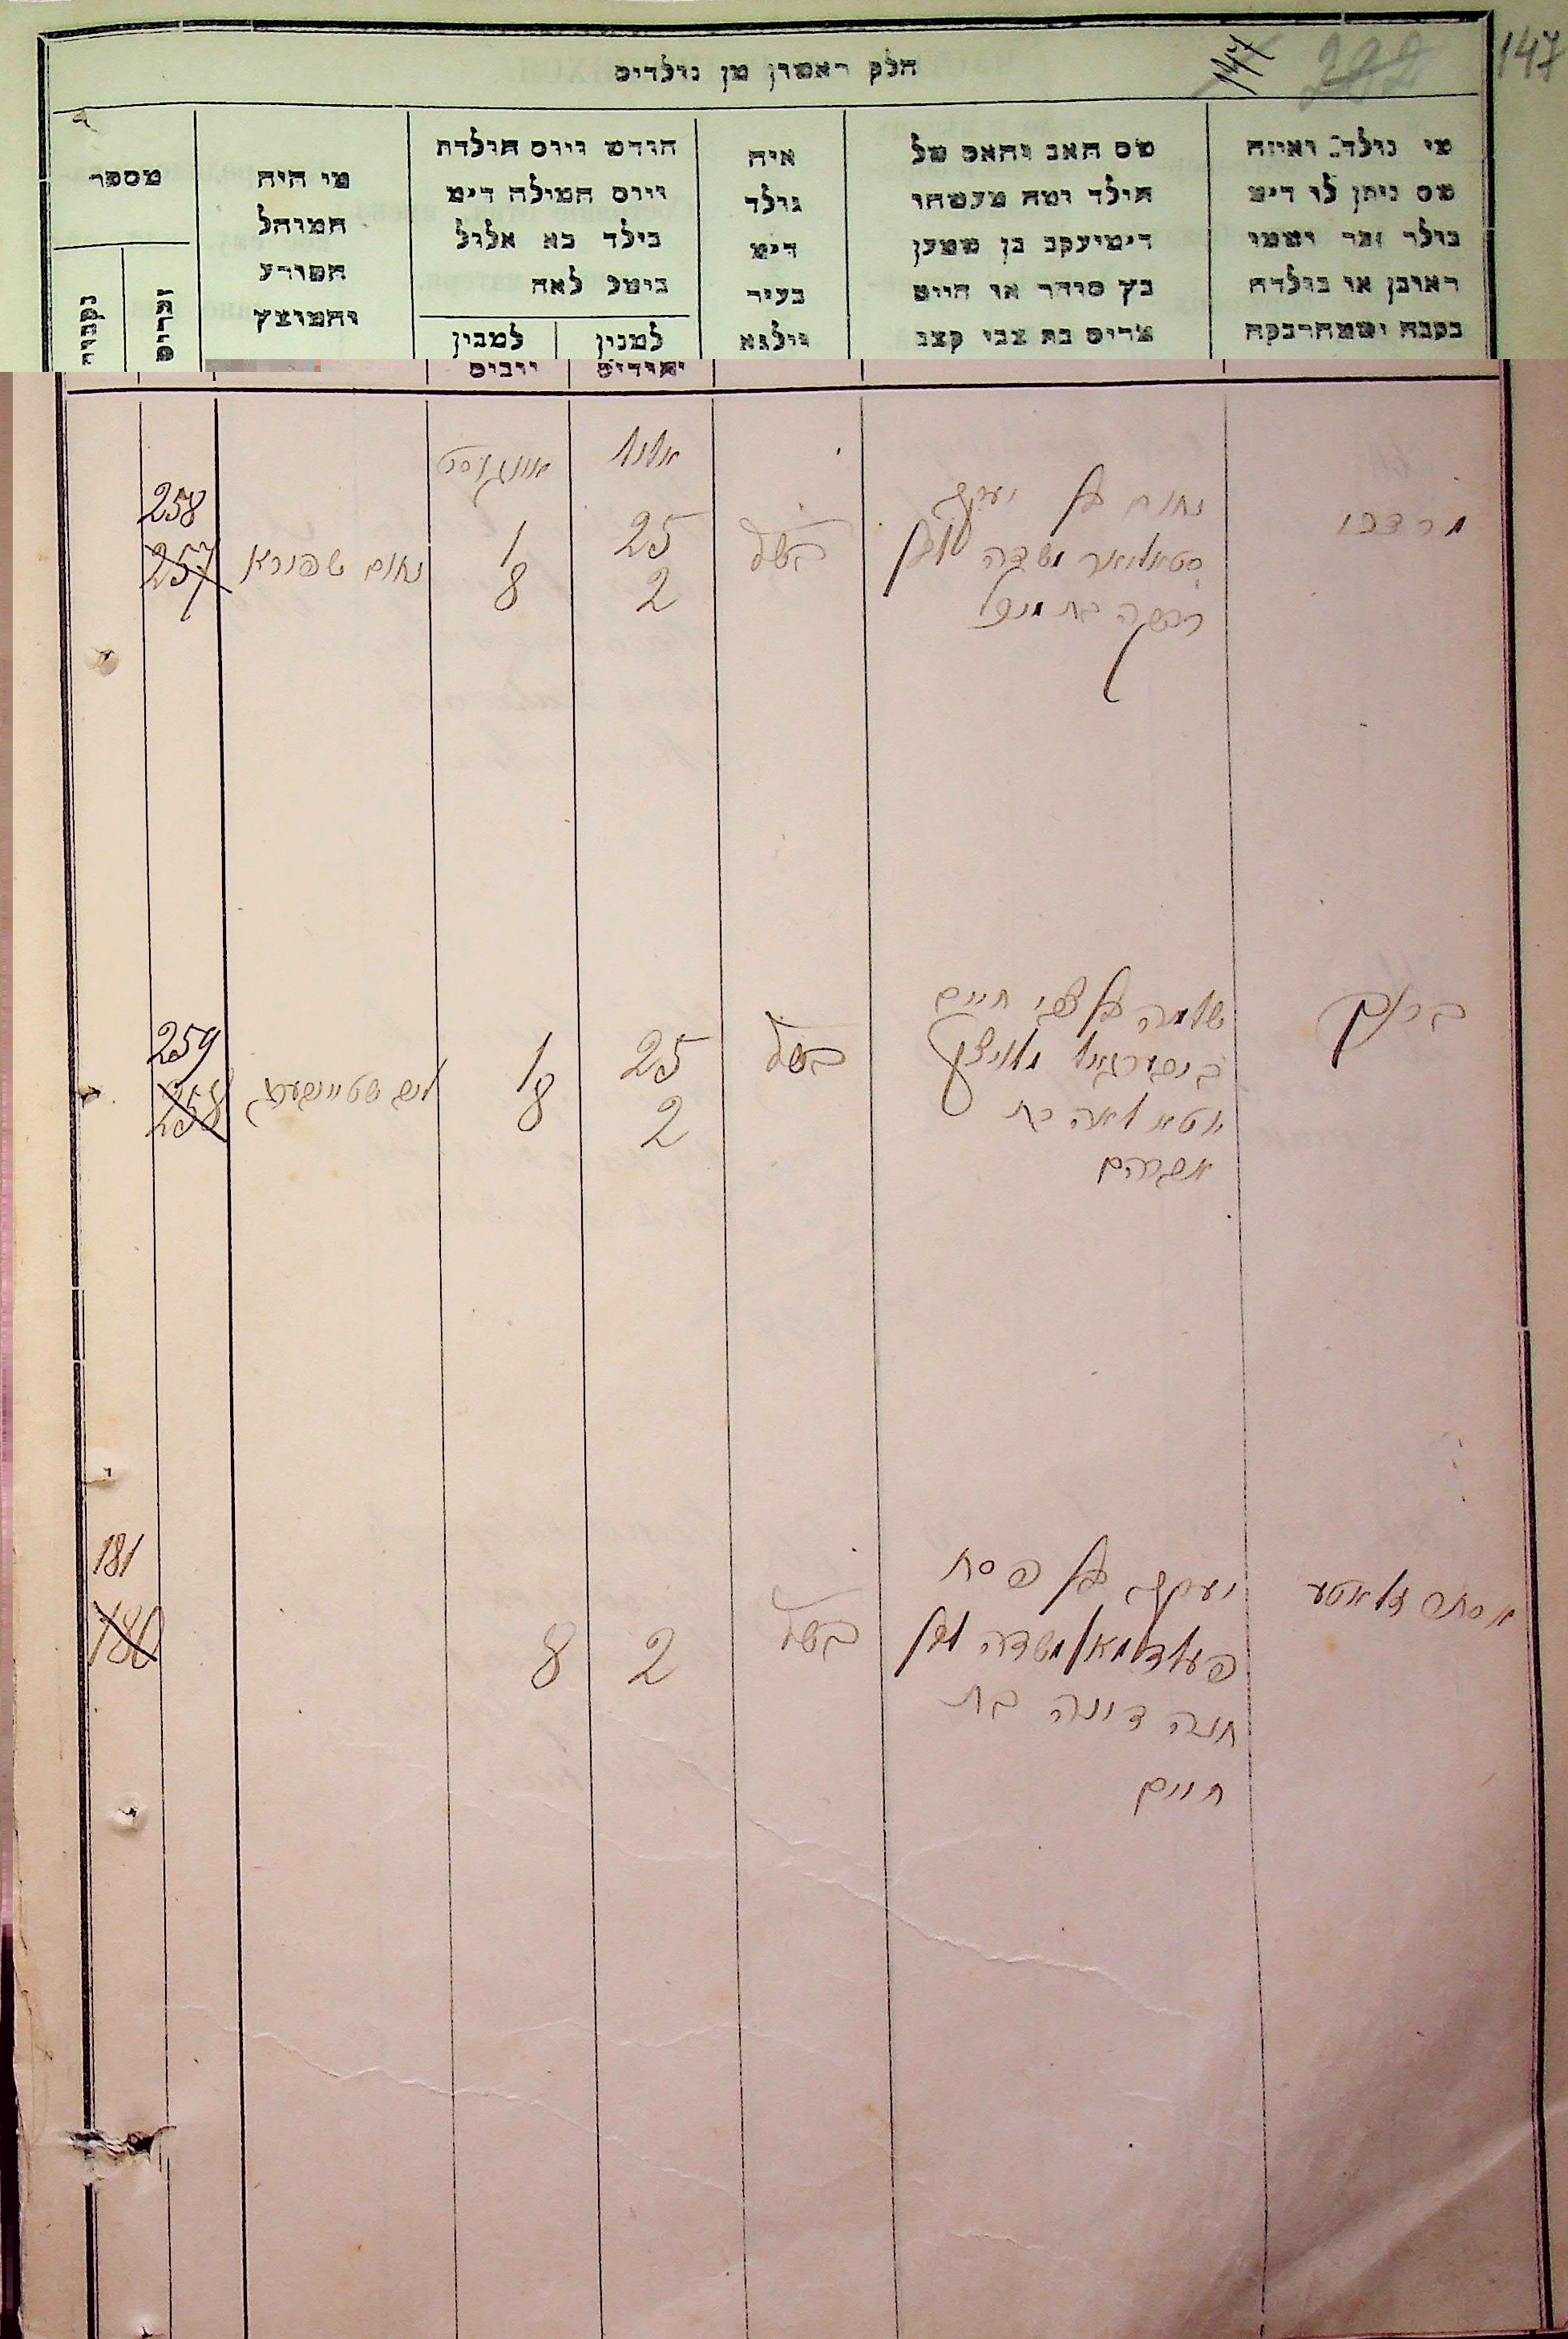 חלק ראשון מן נולדים
147
202
147
מי נולד ואיזה
שם ניתן לו דימ
בולד זכר ושמו
ראובן או בולדה
בקבה ושמה רבקה
שם האב והאם של
הילד ומה מעשהו
דימ יעקב בן שמעון
כץ סוחר או חייט
מרים בת צבי קצב
איה
נולד
דימ
בעיר
ווילנא
חודש ויום הולדת
ויום המילה דימ
בילד כא אלול
בימל לאה
למנין
יהודים
למנין
יוונים
מי היה
המוהל
הפורע
והמוצץ
מספר
זכרים
נקבות
אלול
אוגוסט
מרדכי
נחום בן יעקב
רבקה בת
25
2
1
8
נחום שפירא
258
257
ברוך
שלמה בן צבי חיים
יוטא לאה בת
אברהם
25
2
1
8
259
258
אסתר זלאטע
יעקב בן פסח
פעלדמאן
חנה דינה בת
חיים
2
8
181
180